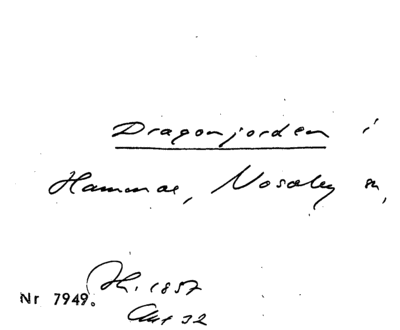 Dragonjorden i
Hammar, Nosaby sn,
Nr 7949.
1857
32